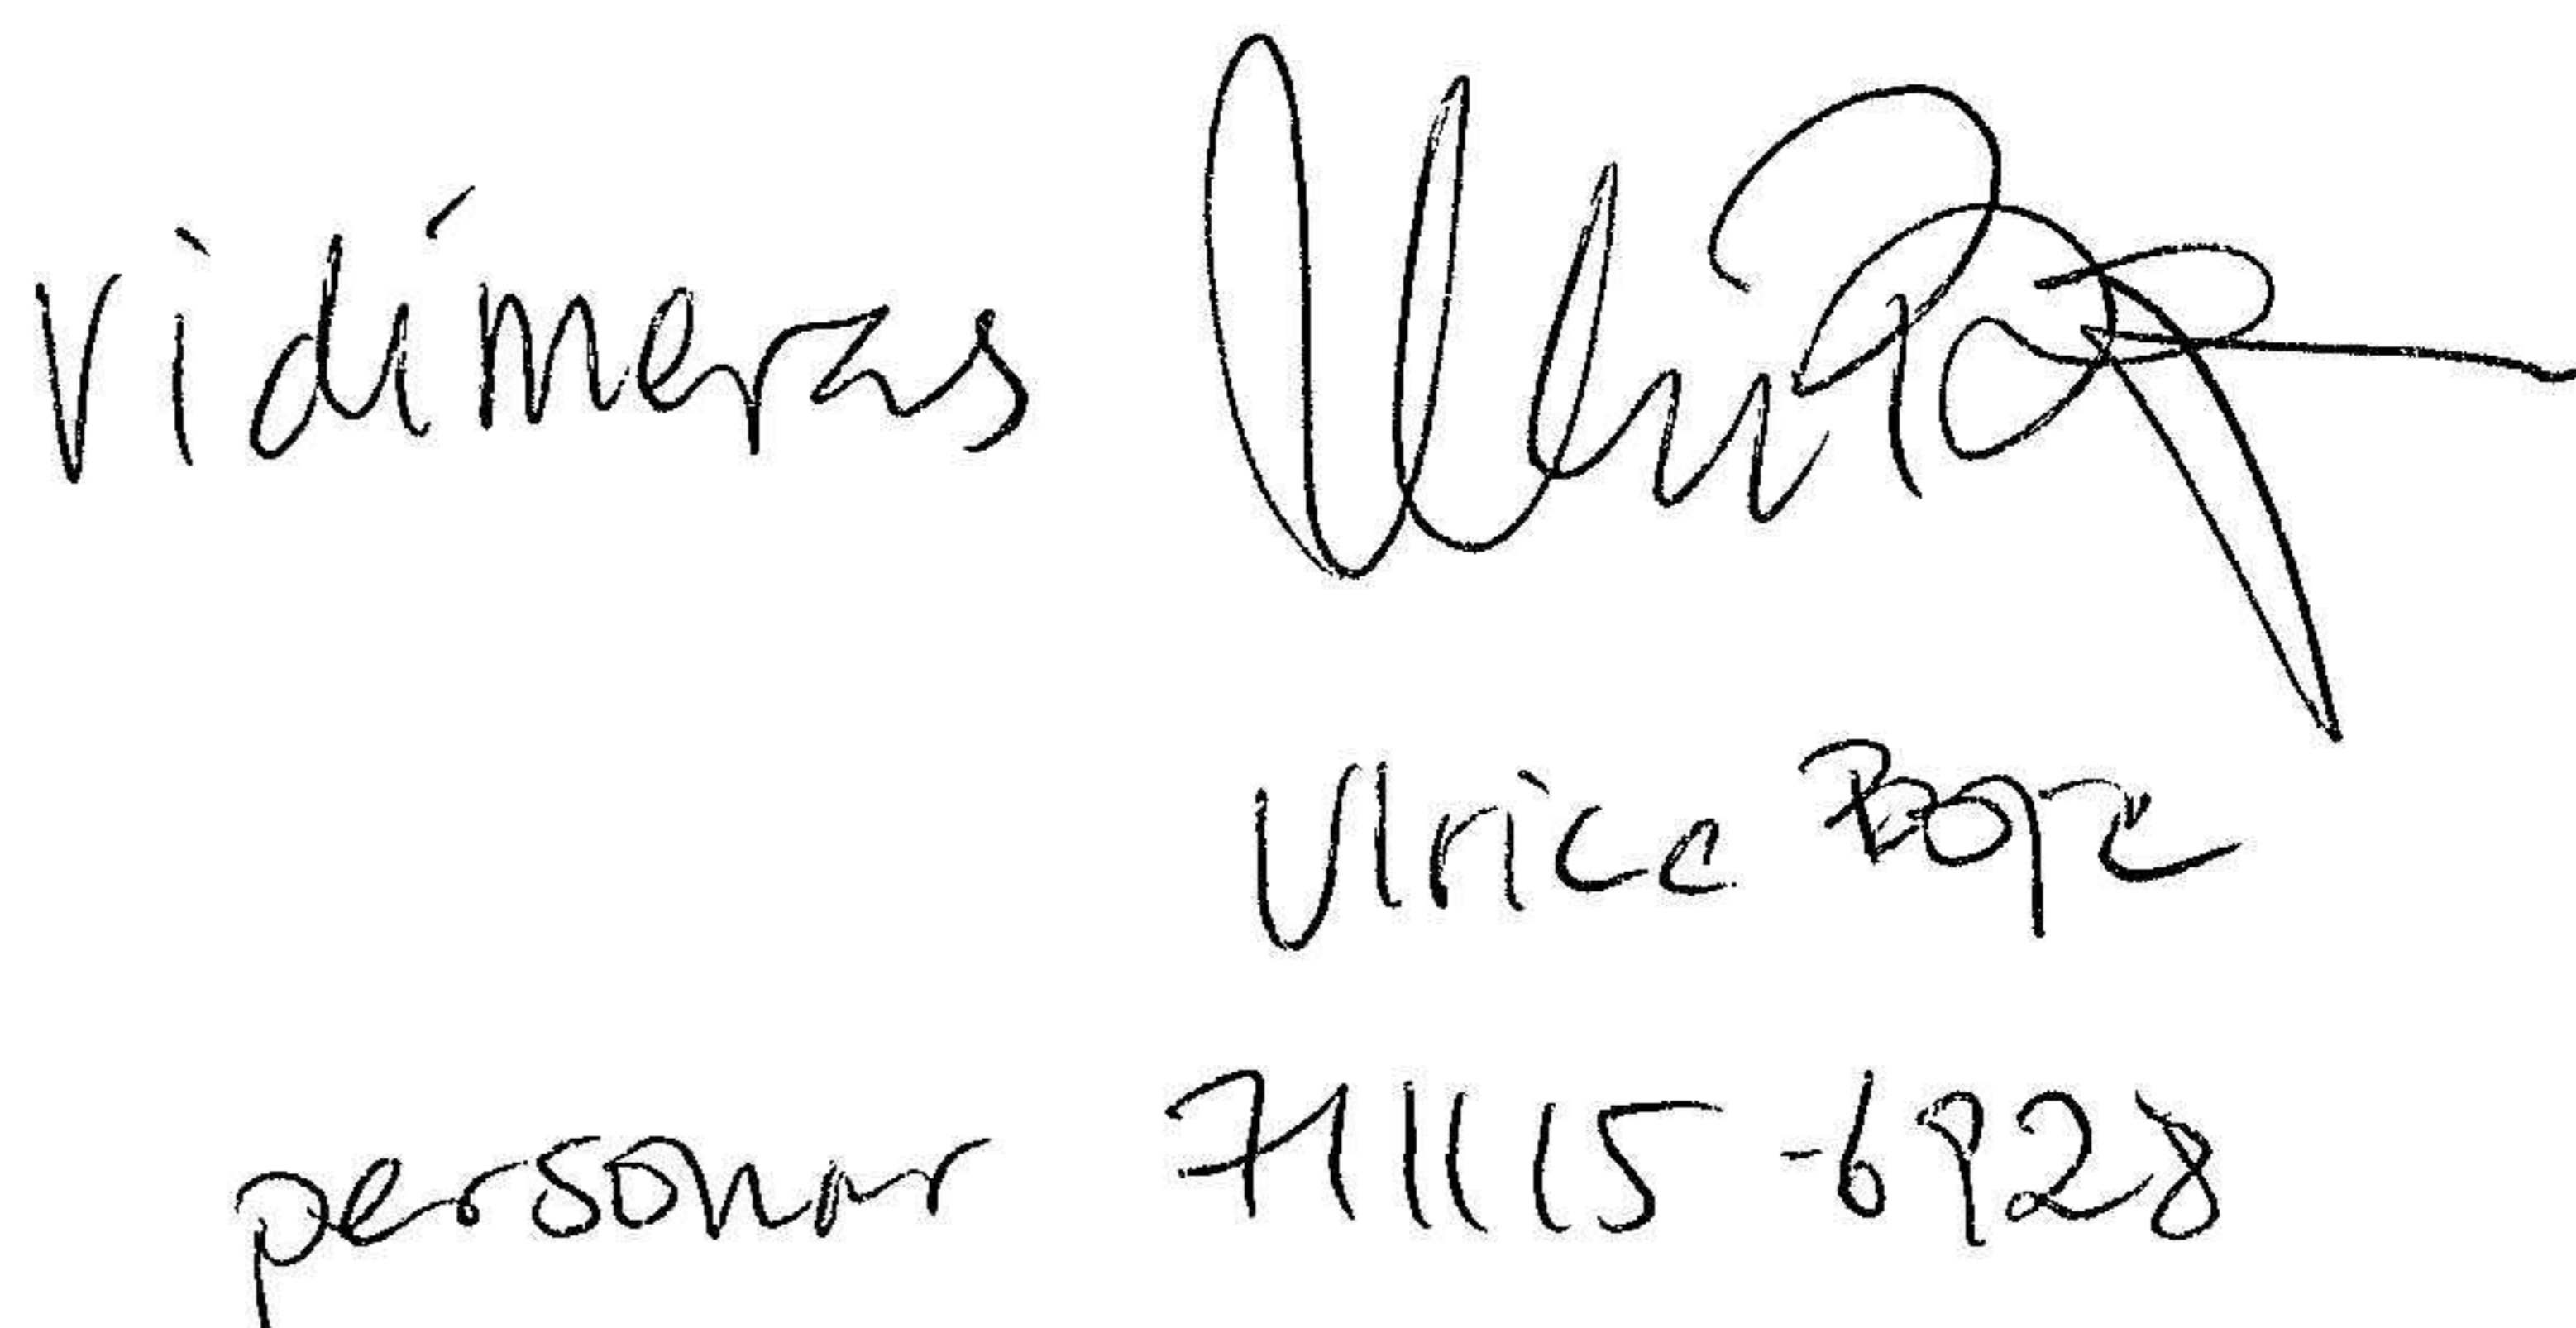 vidimeras
Ulrica
personnr 711115-6928